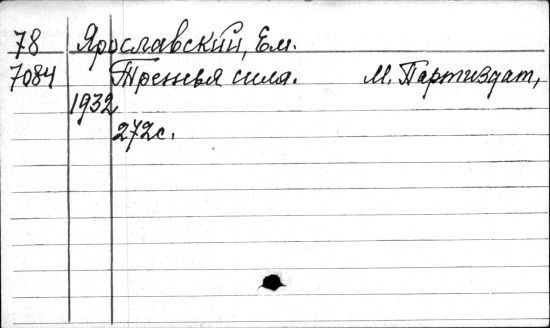 78 Ярославский, Ем.
7084 Третья сила. М. Партиздат,
1932
272с.